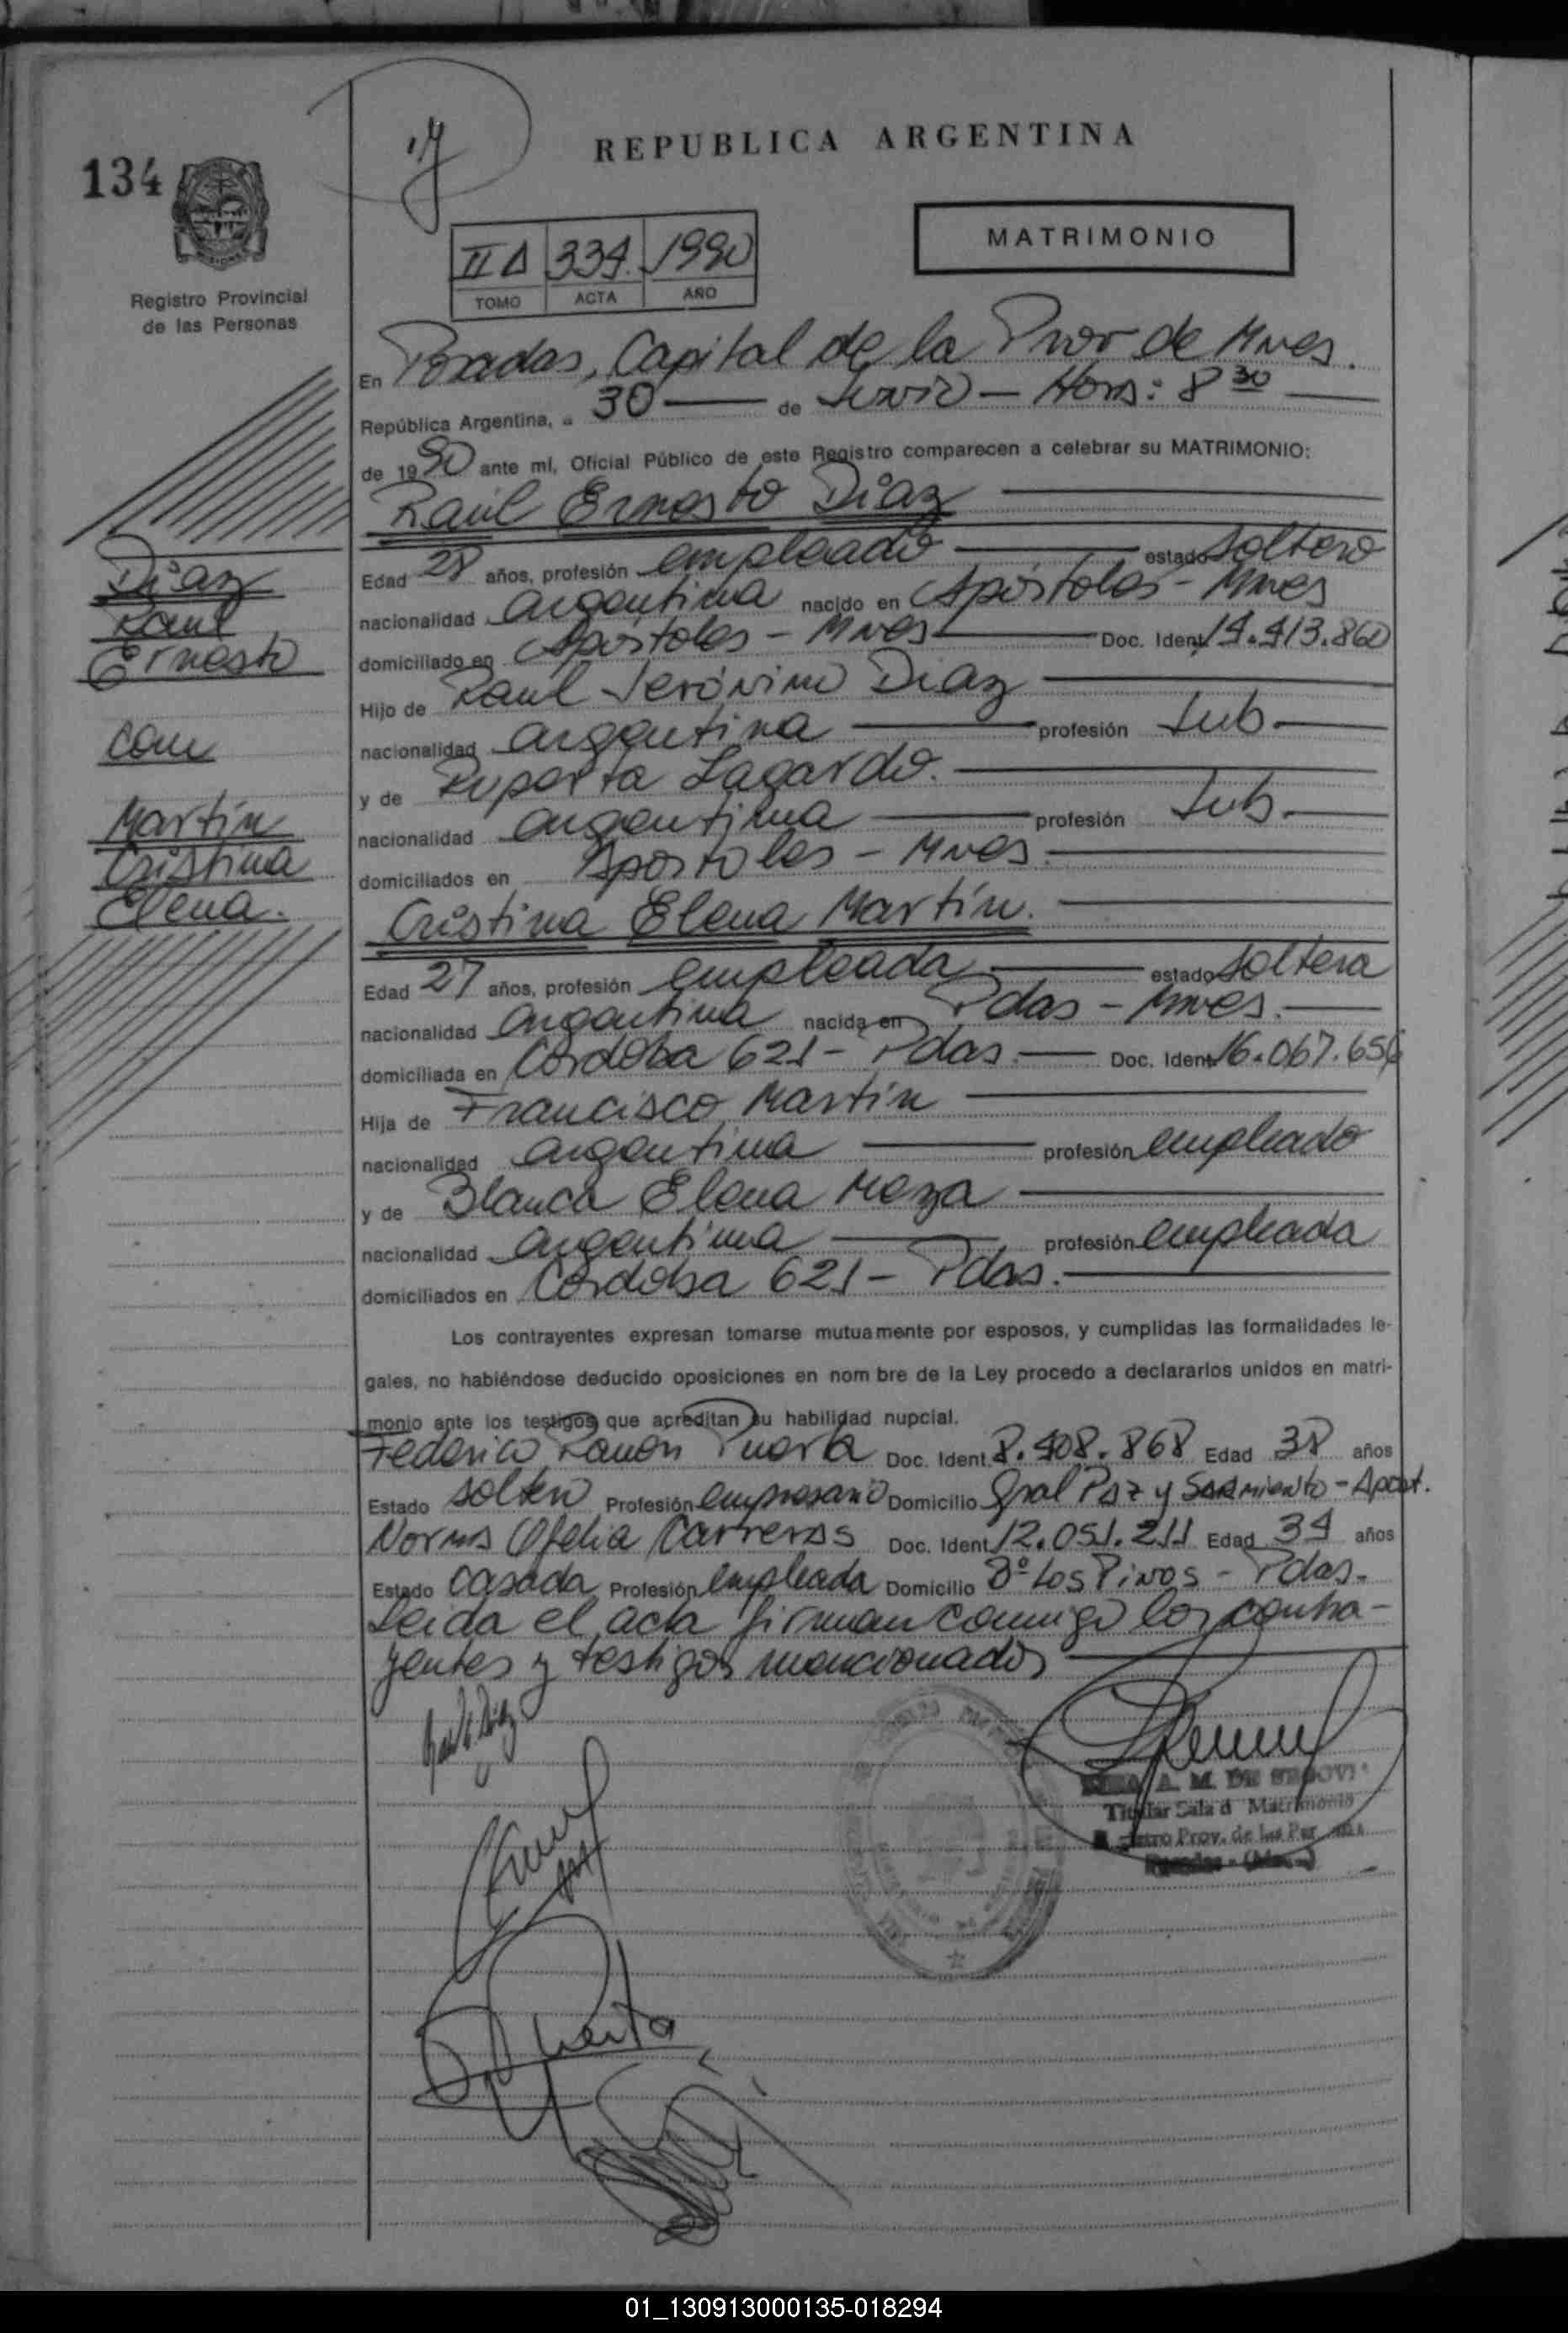 134
REPUBLICA ARGENTINA
MATRIMONIO
II A 334 1990
TOMO ACTA AÑO
Registro Provincial
de las Personas
En Posadas, Capital de la Prov de Mnes.
República Argentina, a 30 de Junio - Hora: 8 30
de 1990 ante mí, Oficial Público de este Registro comparecen a celebrar su MATRIMONIO:
Raúl Ernesto Díaz
Edad 28 años, profesión empleado estado soltero
nacionalidad argentina nacido en Apóstoles - Mnes
domiciliado en Apóstoles - Mnes Doc. Ident. 14.413.860
Hijo de Raúl Jerónimo Díaz
nacionalidad argentina profesión Jub.
y de Ruperta Lagardo.
nacionalidad argentina profesión Jub.
domiciliados en Apóstoles - Mnes.
Cristina Elena Martín.
Edad 27 años, profesión empleada estado soltera
nacionalidad argentina nacida en Pdas - Mnes.
domiciliada en Córdoba 621 - Pdas. Doc. Ident. 16.067.656
Hija de Francisco Martín
nacionalidad argentina profesión empleado
y de Blanca Elena Meza
nacionalidad argentina profesión empleada
domiciliados en Córdoba 621 - Pdas.
Díaz
Raúl
Ernesto
con
Martín
Cristina
Elena.
Los contrayentes expresan tomarse mutuamente por esposos, y cumplidas las formalidades le-
gales, no habiéndose deducido oposiciones en nom bre de la Ley procedo a declararlos unidos en matri-
monio ante los testigos que acreditan su habilidad nupcial.
Federico Ramón Puerta Doc. Ident. 8.408.868 Edad 38 años
Estado soltero Profesión empresario Domicilio Gral Paz y Sarmiento - Apost.
Norma Ofelia Carreras Doc. Ident. 12.051.211 Edad 34 años
Estado casada Profesión empleada Domicilio Bº Los Pinos - Pdas.
Leida el acta firman conmigo los contra-
yentes y testigos mencionados
A. M. DE SEGOVI
Titular Sala d Matrimonio
Prov. de las Per
01_130913000135-018294